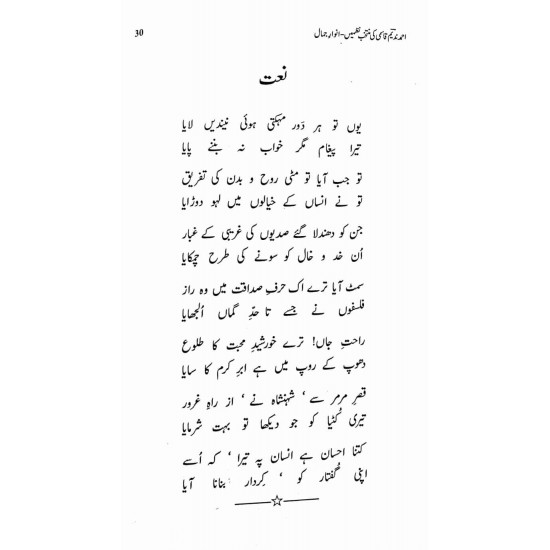 30
احمد ندیم قاسمی کی منتخب نظمیں - انوارِ جمال
نعت
یوں تو ہر دَور مہکتی ہوئی نیندیں لایا
تیرا پیغام مگر خواب نہ بننے پایا
تو جب آیا تو مٹی روح و بدن کی تفریق
تو نے انساں کے خیالوں میں لہو دوڑایا
جن کو دھندلا گئے صدیوں کی غریبی کے غبار
اُن خد و خال کو سونے کی طرح چمکایا
سمٹ آیا ترے اک حرفِ صداقت میں وہ راز
فلسفوں نے جسے تا حدِّ گماں اُلجھایا
راحتِ جاں! ترے خورشیدِ محبت کا طلوع
دھوپ کے روپ میں ہے ابرِ کرم کا سایا
قصرِ مرمر سے ‘ شہنشاہ نے ‘ از راہِ غرور
تیری کُٹیا کو جو دیکھا تو بہت شرمایا
کتنا احسان ہے انسان پہ تیرا ‘ کہ اُسے
اپنی گفتار کو ‘ کردار بنانا آیا